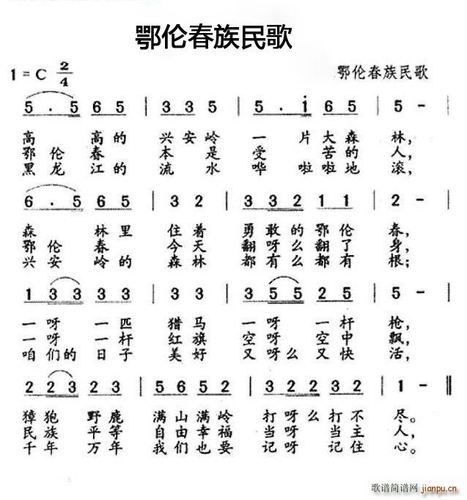 鄂伦春族民歌
1=C 2/4 鄂伦春族民歌
5. 5 6 5 | 3 3 5 | 5. i 6 5 | 5 - |
高 高 的 兴 安 岭 一 片 大 森 林,
鄂 伦 春 本 是 受 苦 的 人,
黑 龙 江 的 流 水 哗 啦 啦 地 滚,
6. 5 6 5 | 3 2 | 3 3 2 1 1 | 2 - |
森 林 里 住 着 勇 敢 的 鄂 伦 春,
鄂 伦 春 今 天 翻 呀 么 翻 了 身,
兴 安 岭 的 森 林 都 有 么 都 有 根;
1 3 3 3 | 3 3 | 3 5 5 2 5 | 5 - |
一 呀 一 匹 猎 马 一 呀 一 杆 枪,
一 呀 一 杆 红 旗 空 呀 空 中 飘,
咱 们 的 日 子 美 好 又 呀 么 又 快 活,
2 2 2 3 | 5 6 5 2 | 3 2 3 2 2 | 1 - ‖
獐 狍 野 鹿 满 山 满 岭 打 呀 么 打 不 尽。
民 族 平 等 自 由 幸 福 要 当 呀 当 主 人,
千 年 万 年 我 们 也 要 记 呀 记 住 心。
歌谱简谱网
jianpu.cn